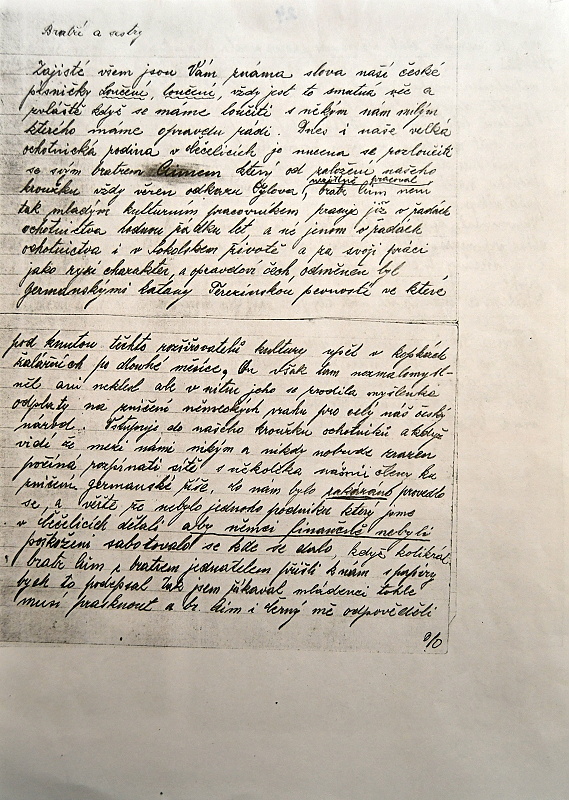 Bratři a sestry
Zajisté všem jsou Vám známa slova naší české
písničky loučení, loučení, vždy jest to smutná věc a
zvláště když se máme loučiti s někým nám milým
kterého máme opravdu rádi. Dnes i naše velká
ochotnická rodina v Čečelicích je nucena se rozloučit
se svým bratrem Čimem který od založení našeho
kroužku vždy věren odkazu Tylova, bratr Čim není
usilovně pracoval
tak mladým kulturním pracovníkem pracuje již v řadách
ochotnictva hodnou řádku let, a ne jenom v řadách
ochotnictva i v Sokolském životě a za svoji práci
jako ryzí charakter, a opravdový čech odměněn byl
germánskými katany Terezínskou pevností ve které
pod knutou těchto rozšiřovatelů kultury úpěl v kobkách
žalářních po dlouhé měsíce. On však tam nezmalomysl-
něl ani neklesl ale v nitru jeho se zrodila myšlenka
odplaty na zničení německých vrahů pro celý náš český
národ. Vstupuje do našeho kroužku ochotníků a když
vidí že mezi námi nikým a nikdy nebude zrazen
počíná rozpínati sítě s několika našimi členy ke
zničení germánské říše, co nám bylo zakázáno provedlo
se a věřte že nebylo jednoho podniku který jsme
v Čečelicích dělali aby němci finančně nebyli
poškozeni sabotovalo se kde se dalo, když kolikrát
bratr Čim s bratrem jednatelem přišli k nám s papíry
bych to podepsal tak jsem říkával mládenci tohle
musí prasknout a br. Čim i Černý mě odpověděli